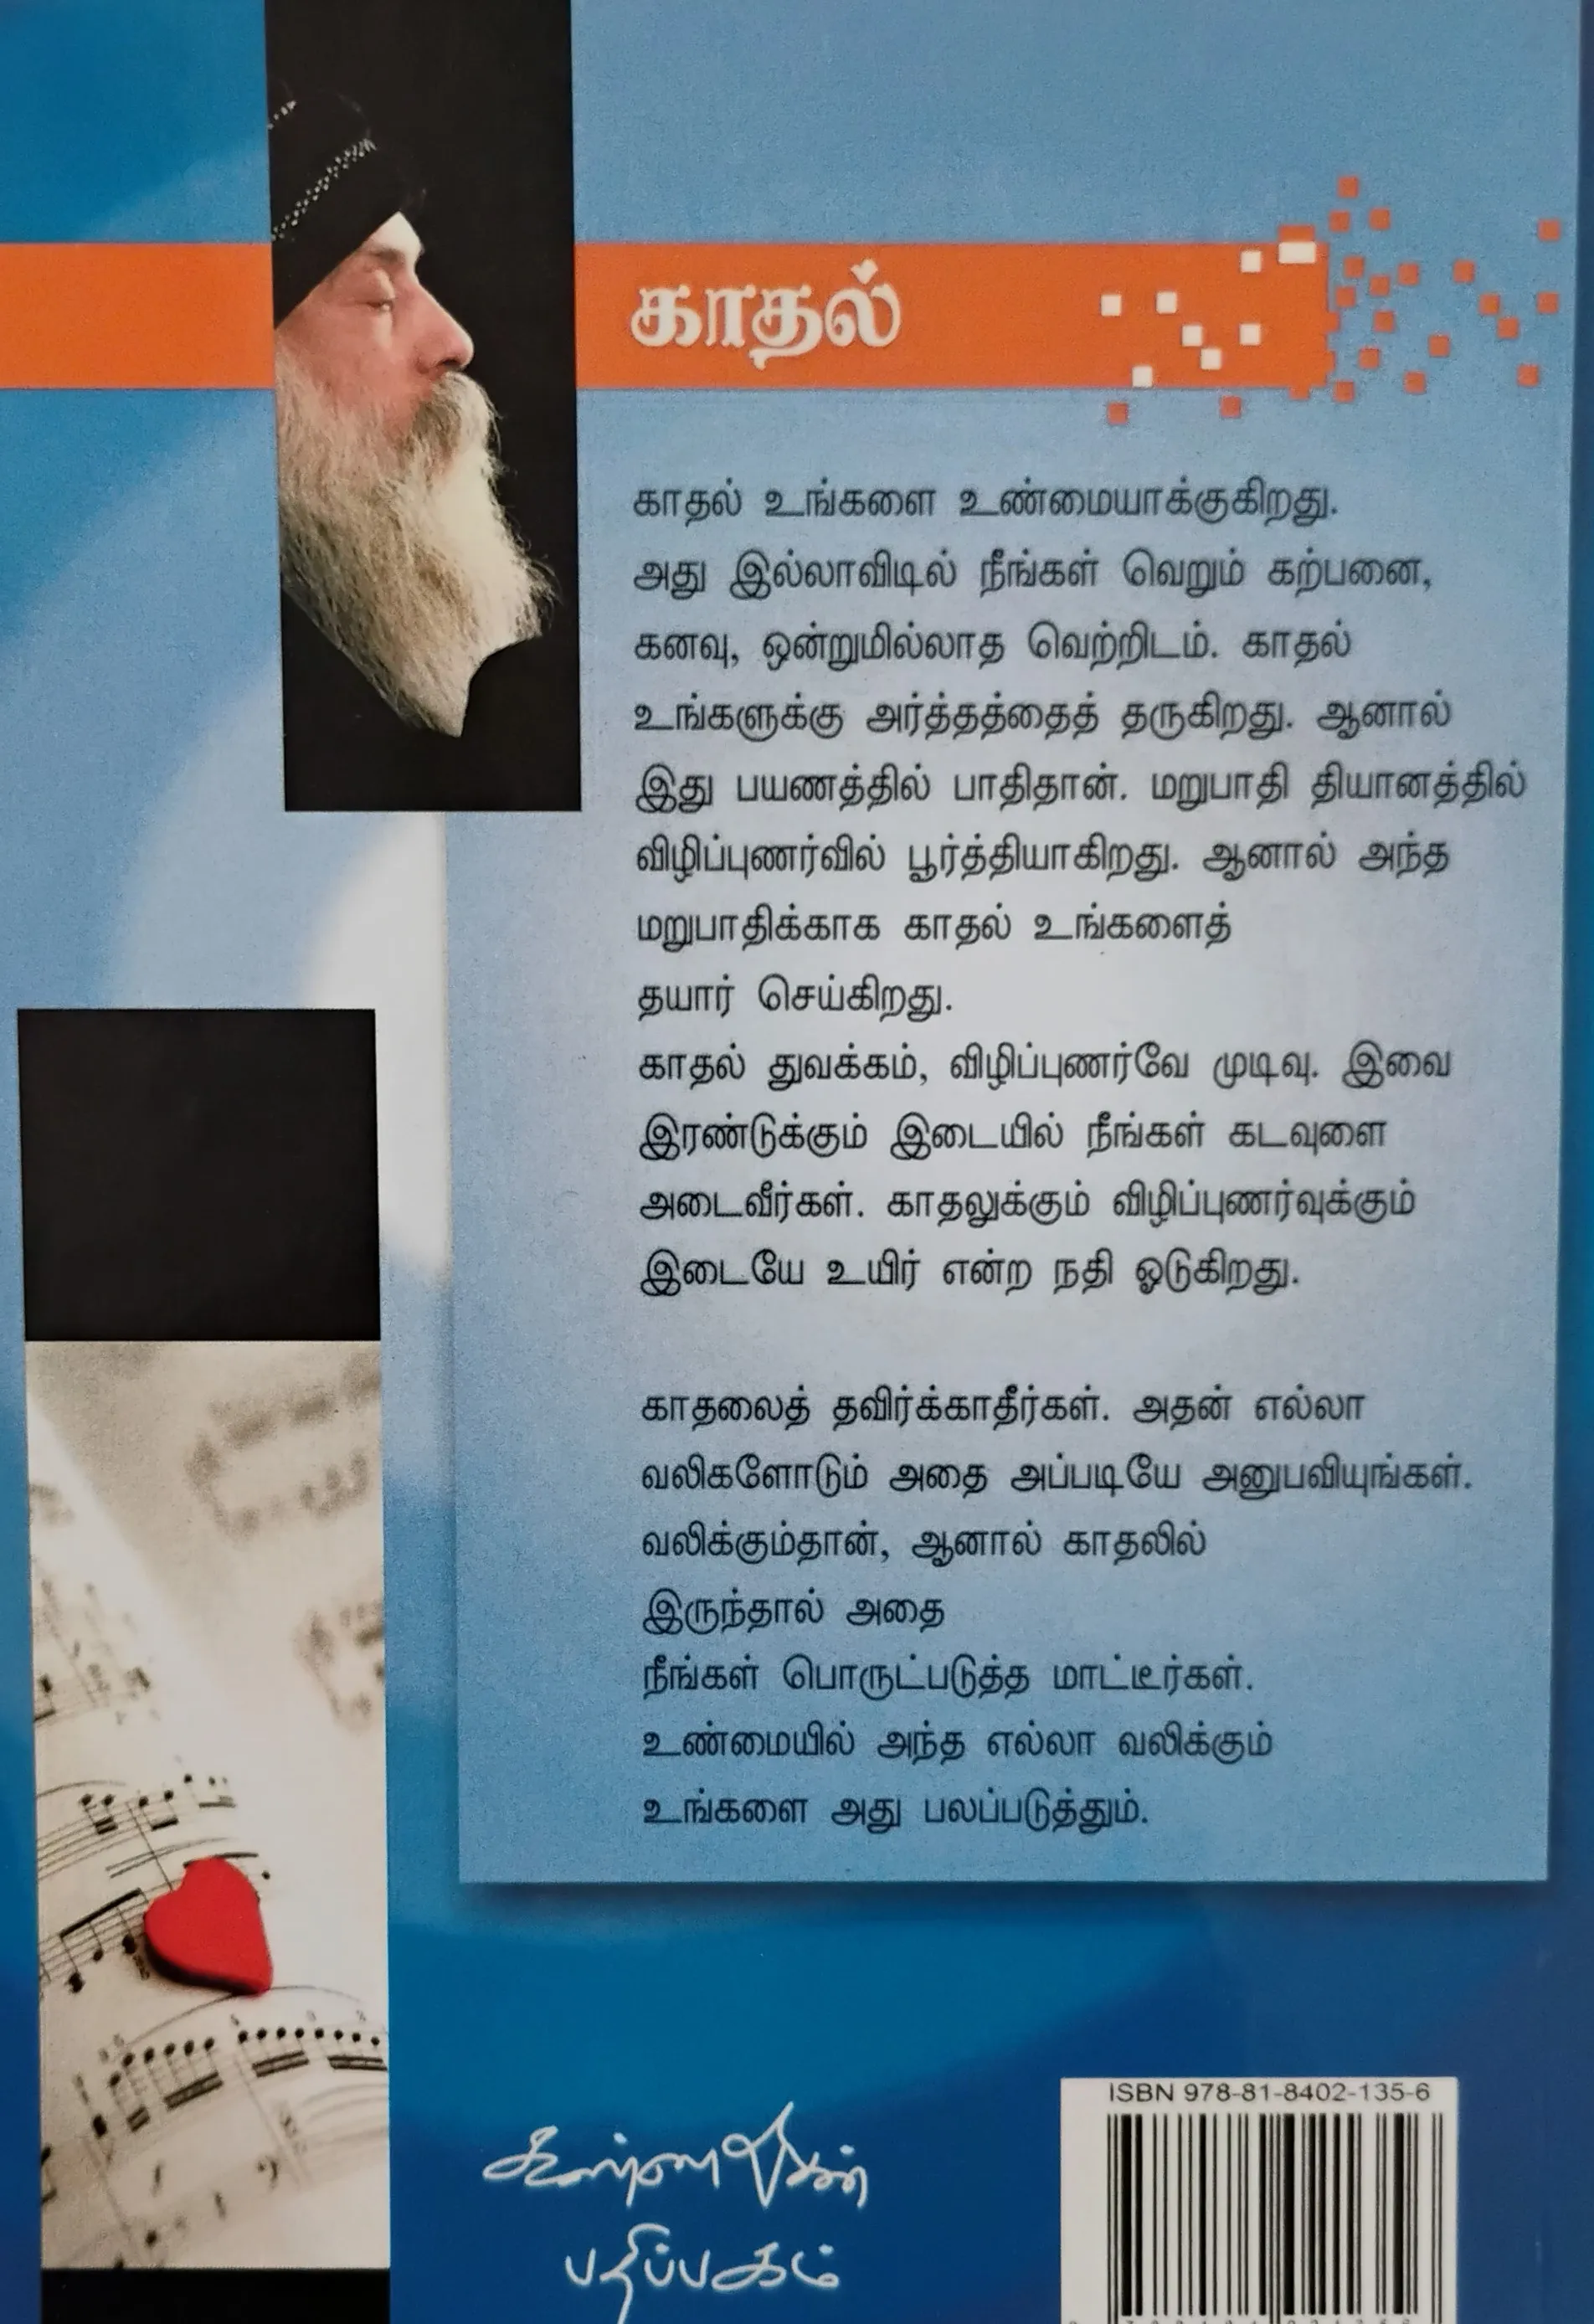 காதல்
காதல் உங்களை உண்மையாக்குகிறது.
அது இல்லாவிடில் நீங்கள் வெறும் கற்பனை,
கனவு, ஒன்றுமில்லாத வெற்றிடம். காதல்
உங்களுக்கு அர்த்தத்தைத் தருகிறது. ஆனால்
இது பயணத்தில் பாதிதான். மறுபாதி தியானத்தில்
விழிப்புணர்வில் பூர்த்தியாகிறது. ஆனால் அந்த
மறுபாதிக்காக காதல் உங்களைத்
தயார் செய்கிறது.
காதல் துவக்கம், விழிப்புணர்வே முடிவு. இவை
இரண்டுக்கும் இடையில் நீங்கள் கடவுளை
அடைவீர்கள். காதலுக்கும் விழிப்புணர்வுக்கும்
இடையே உயிர் என்ற நதி ஓடுகிறது.
காதலைத் தவிர்க்காதீர்கள். அதன் எல்லா
வலிகளோடும் அதை அப்படியே அனுபவியுங்கள்.
வலிக்கும்தான், ஆனால் காதலில்
இருந்தால் அதை
நீங்கள் பொருட்படுத்த மாட்டீர்கள்.
உண்மையில் அந்த எல்லா வலிக்கும்
உங்களை அது பலப்படுத்தும்.
ISBN 978-81-8402-135-6
கண்ணதாசன்
பதிப்பகம்